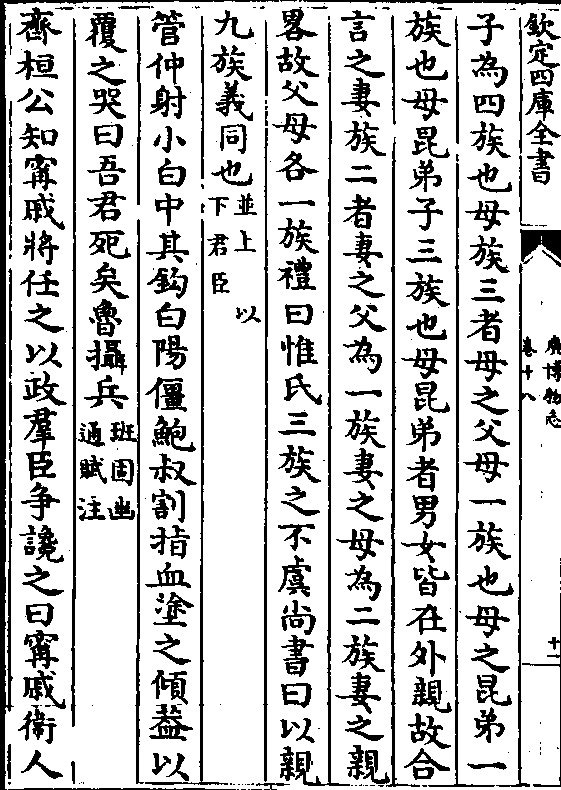 欽定四庫全書
廣博物志
卷十八
十一
子為四族也母族三者母之父母一族也母之昆弟一
族也母昆弟子三族也母昆弟者男女皆在外親故合
言之妻族二者妻之父為一族妻之母為二族妻之親
畧故父母各一族禮曰惟氏三族之不虞尚書曰以親
九族義同也並上以
下君臣
管仲射小白中其鈎白陽僵鮑叔割指血塗之傾葢以
覆之哭曰吾君死矣魯攝兵班固幽
通賦注
齊桓公知甯戚將任之以政羣臣争讒之曰甯戚衞人